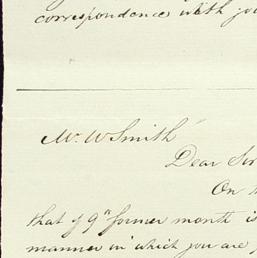 correspondence with you
Mr. W Smith
Dear Sir
On
that of 9th former month is
manner in which you are